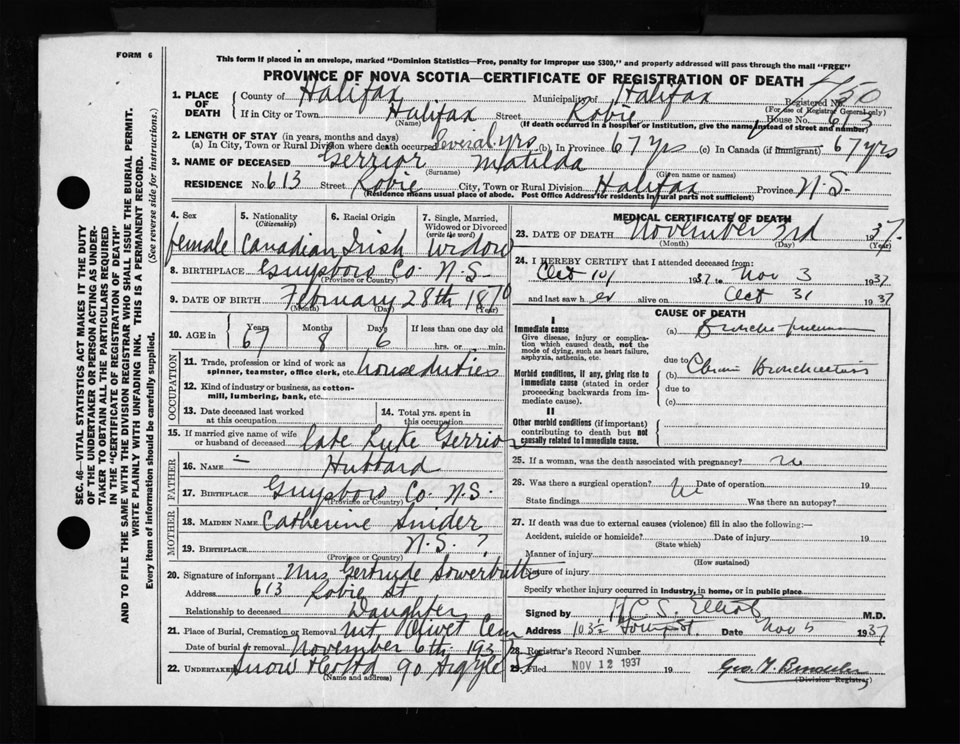 FORM 6
This form if placed in an envelope, marked "Dominion Statistics—Free, penalty for improper use $300," and properly addressed will pass through the mail "FREE"
PROVINCE OF NOVA SCOTIA—CERTIFICATE OF REGISTRATION OF DEATH
1. PLACE OF DEATH
County of Halifax Municipality of Halifax Registered No.
(For use of Registrar General only)
If in City or Town Halifax Street Robie House No. 613
(Name) (If death occurred in a hospital or institution, give the name instead of street and number)
2. LENGTH OF STAY (in years, months and days)
(a) In City, Town or Rural Division where death occurred Several yrs. (b) In Province 67 yrs (c) In Canada (if immigrant) 67 yrs
3. NAME OF DECEASED Gerrior Matilda
(Surname) (Given name or names)
RESIDENCE No. 613 Street Robie City, Town or Rural Division Halifax Province N.S.
(Residence means usual place of abode. Post Office Address for residents in rural parts not sufficient)
4. Sex female
5. Nationality (Citizenship) Canadian
6. Racial Origin Irish
7. Single, Married, Widowed or Divorced (write the word) Widow
8. BIRTHPLACE Guysboro Co. N.S.
(Province or Country)
9. DATE OF BIRTH February 28th 1870
(Month) (Day) (Year)
10. AGE in Years 67 Months 8 Days 6 If less than one day old hrs. or min.
OCCUPATION
11. Trade, profession or kind of work as spinner, teamster, office clerk, etc. house duties
12. Kind of industry or business, as cotton-mill, lumbering, bank, etc.
13. Date deceased last worked at this occupation
14. Total yrs. spent in this occupation
15. If married give name of wife or husband of deceased late Luke Gerrior
FATHER
16. NAME — Hubbard
17. BIRTHPLACE Guysboro Co. N.S.
(Province or Country)
MOTHER
18. MAIDEN NAME Catherine Snider
19. BIRTHPLACE N.S. ?
(Province or Country)
20. Signature of informant Mrs Gertrude Sowerbutts
Address 613 Robie St
Relationship to deceased Daughter
21. Place of Burial, Cremation or Removal Mt. Olivet Cem
Date of burial or removal November 6th 1937
22. UNDERTAKER Snow 90 Argyle St
(Name and address)
MEDICAL CERTIFICATE OF DEATH
23. DATE OF DEATH November 3rd 1937.
(Month) (Day) (Year)
24. I HEREBY CERTIFY that I attended deceased from:
Oct 10 1937 to Nov 3 1937
and last saw h er alive on Oct 31 1937
CAUSE OF DEATH
I
Immediate cause
Give disease, injury or complication which caused death, not the mode of dying, such as heart failure, asphyxia, asthenia, etc.
(a) Broncho-pneumonia
due to
Morbid conditions, if any, giving rise to immediate cause (stated in order proceeding backwards from immediate cause).
(b) Chronic Bronchiectasis
due to
(c)
II
Other morbid conditions (if important) contributing to death but not causally related to immediate cause.
25. If a woman, was the death associated with pregnancy? no
26. Was there a surgical operation? no Date of operation 19
State findings Was there an autopsy?
27. If death was due to external causes (violence) fill in also the following:—
Accident, suicide or homicide? Date of injury 19
(State which)
Manner of injury
(How sustained)
Nature of injury
Specify whether injury occurred in Industry, in home, or in public place
Signed by H.C.S. Elliot M.D.
Address 103½ Date Nov 5 1937
28. Registrar's Record Number
29. Filed NOV 12 1937 19
(Division Registrar)
SEC. 46—VITAL STATISTICS ACT MAKES IT THE DUTY OF THE UNDERTAKER OR PERSON ACTING AS UNDERTAKER TO OBTAIN ALL THE PARTICULARS REQUIRED IN THE "CERTIFICATE OF REGISTRATION OF DEATH" AND TO FILE THE SAME WITH THE DIVISION REGISTRAR WHO SHALL ISSUE THE BURIAL PERMIT.
WRITE PLAINLY WITH UNFADING INK. THIS IS A PERMANENT RECORD.
Every item of information should be carefully supplied. (See reverse side for instructions.)